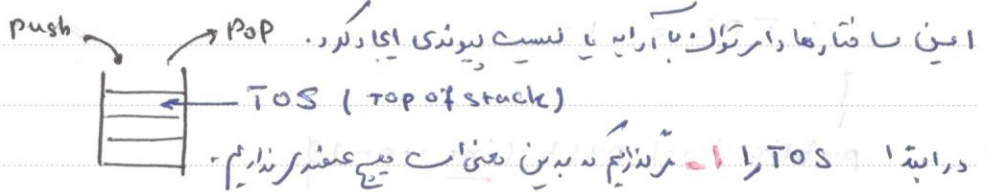 push POP این ساختارها را می‌توان با آرایه یا لیست پیوندی ایجاد کرد.
TOS ( Top of stack )
در ابتدا TOS را -1 می‌گذاریم که بدین معنی است هیچ عنصری نداریم.